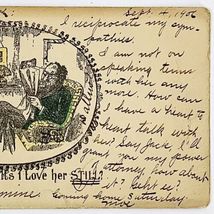 Sept. 4, 1906
I reciprocate my sym-
pathies.
I am not on
speaking terms
with her any
more. How can
I have a heart to
heart talk with
her. Say Jack, I'll
grant you my power
attorney, how about
it? Get ee?
its I Love her STILL?
mine. Coming home Saturday